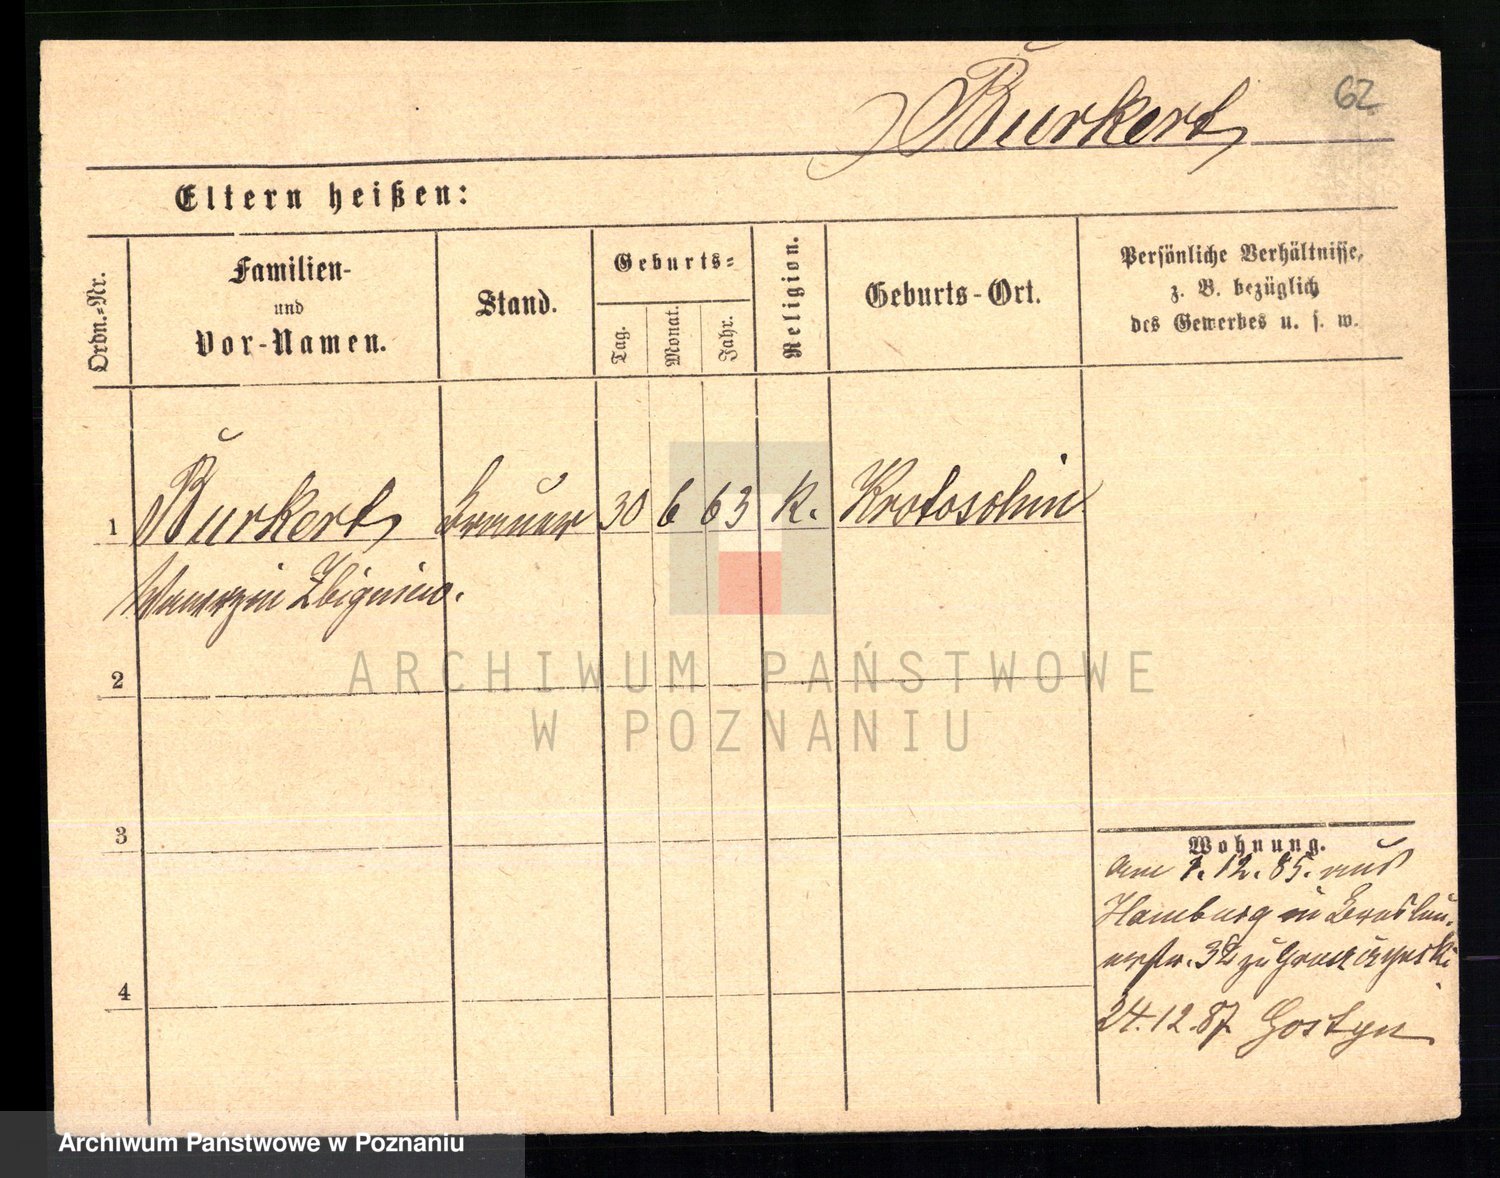 62
Burkert
Eltern heißen:
Ordn.-Nr.
Familien-
und
Vor-Namen.
Stand.
Geburts-
Tag.
Monat.
Jahr.
Religion.
Geburts-Ort.
Persönliche Verhältnisse,
z. B. bezüglich
des Gewerbes u. s. w.
1 Burkert Brauer 30 6 63 k. Krotoschin
Zbigniew.
2
3
4
Wohnung.
am 1.12.85. aus
Hamburg in Breslau-
erstr. 32 zu
24.12.87. Gostyn
ARCHIWUM PAŃSTWOWE
W POZNANIU
Archiwum Państwowe w Poznaniu